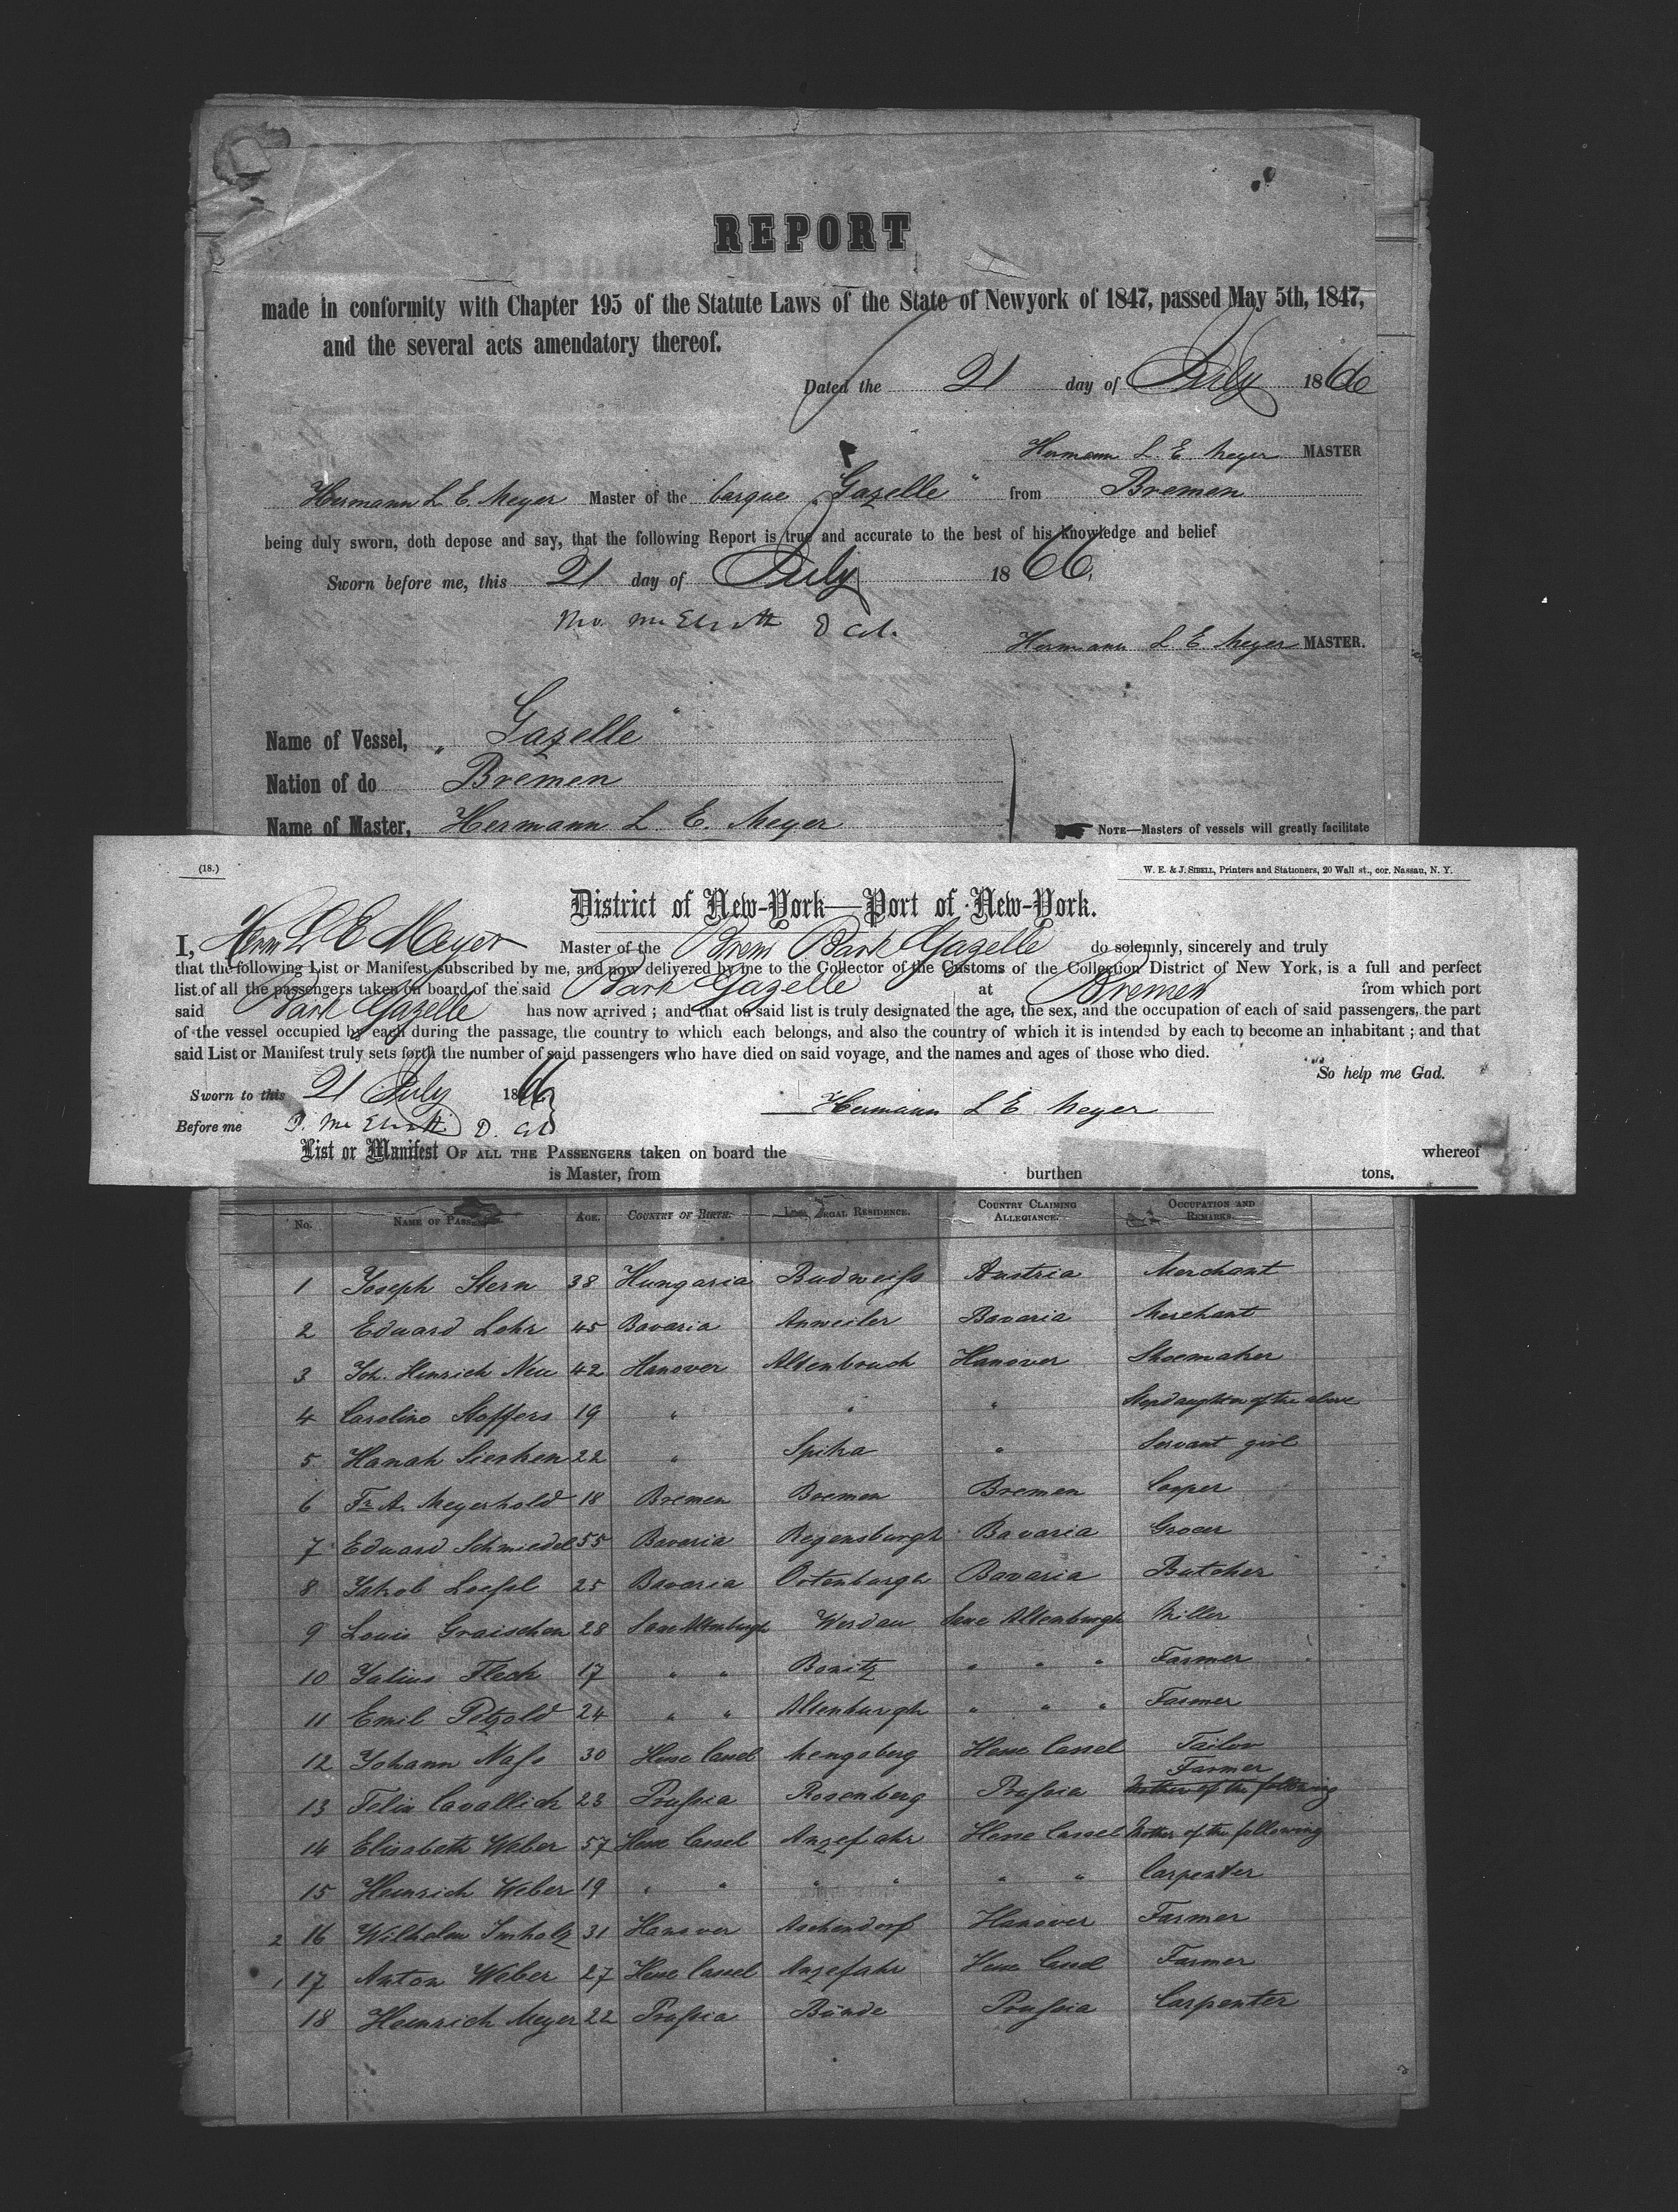 REPORT
made in conformity with Chapter 195 of the Statute Laws of the State of Newyork of 1847, passed May 5th, 1847,
and the several acts amendatory thereof.
Dated the 21 day of July 1866
Hermann L. E. Meyer MASTER
Hermann L. E. Meyer Master of the barque „Gazelle“ from Bremen
being duly sworn, doth depose and say, that the following Report is true and accurate to the best of his knowledge and belief
Sworn before me, this 21 day of July 1866.
Hermann L. E. Meyer MASTER.
Name of Vessel, „Gazelle“
Nation of do Bremen
Name of Master, Hermann L. E. Meyer
NOTE—Masters of vessels will greatly facilitate
(18.)
W. E. & J. SIBELL, Printers and Stationers, 20 Wall st., cor. Nassau, N. Y.
District of New-York—Port of New-York.
I, Herm L E Meyer Master of the Brem Bark Gazelle do solemnly, sincerely and truly
that the following List or Manifest, subscribed by me, and now delivered by me to the Collector of the Customs of the Collection District of New York, is a full and perfect
list of all the passengers taken on board of the said Bark Gazelle at Bremen from which port
said Bark Gazelle has now arrived ; and that on said list is truly designated the age, the sex, and the occupation of each of said passengers, the part
of the vessel occupied by each during the passage, the country to which each belongs, and also the country of which it is intended by each to become an inhabitant ; and that
said List or Manifest truly sets forth the number of said passengers who have died on said voyage, and the names and ages of those who died.
So help me God.
Sworn to this 21 July 1866
Hermann L E Meyer
Before me
List or Manifest OF ALL THE PASSENGERS taken on board the whereof
is Master, from burthen tons.
No. NAME OF AGE. COUNTRY OF BIRTH. LEGAL RESIDENCE. COUNTRY CLAIMING ALLEGIANCE. OCCUPATION AND REMARKS.
1 Joseph Stern 38 Hungaria Budweiss Austria Merchant
2 Eduard Lehr 45 Bavaria Anweiler Bavaria Merchant
3 Joh. Hinrich Neu 42 Hanover Altenbruch Hanover Shoemaker
4 Caroline Stoffers 19 " " " Stepdaughter of the above
5 Hanah Sierken 22 " Spika " Servant girl
6 Fr. A. Meyerhold 18 Bremen Bremen Bremen Cooper
7 Eduard Schmiedel 55 Bavaria Regensburgh Bavaria Grocer
8 Jakob Loefsl 25 Bavaria Ortenburgh Bavaria Butcher
9 Louis Graischen 28 Saxe Altenburgh Werdau Saxe Altenburgh Miller
10 Julius Fleck 17 " " Bonitz " " " Farmer
11 Emil Petzold 24 " " Altenburgh " " " Farmer
12 Johann Nass 30 Hesse Cassel Mengsberg Hesse Cassel Tailor
Farmer
13 Felix Cavallich 23 Prussia Rosenberg Prussia Mother of the following
14 Elisabeth Weber 57 Hesse Cassel Anzefahr Hesse Cassel Mother of the following
15 Heinrich Weber 19 " " " " " " Carpenter
2 16 Wilhelm Imholz 31 Hanover Aschendorf Hanover Farmer
1 17 Anton Weber 27 Hesse Cassel Anzefahr Hesse Cassel Farmer
18 Heinrich Meyer 22 Prussia Bünde Prussia Carpenter